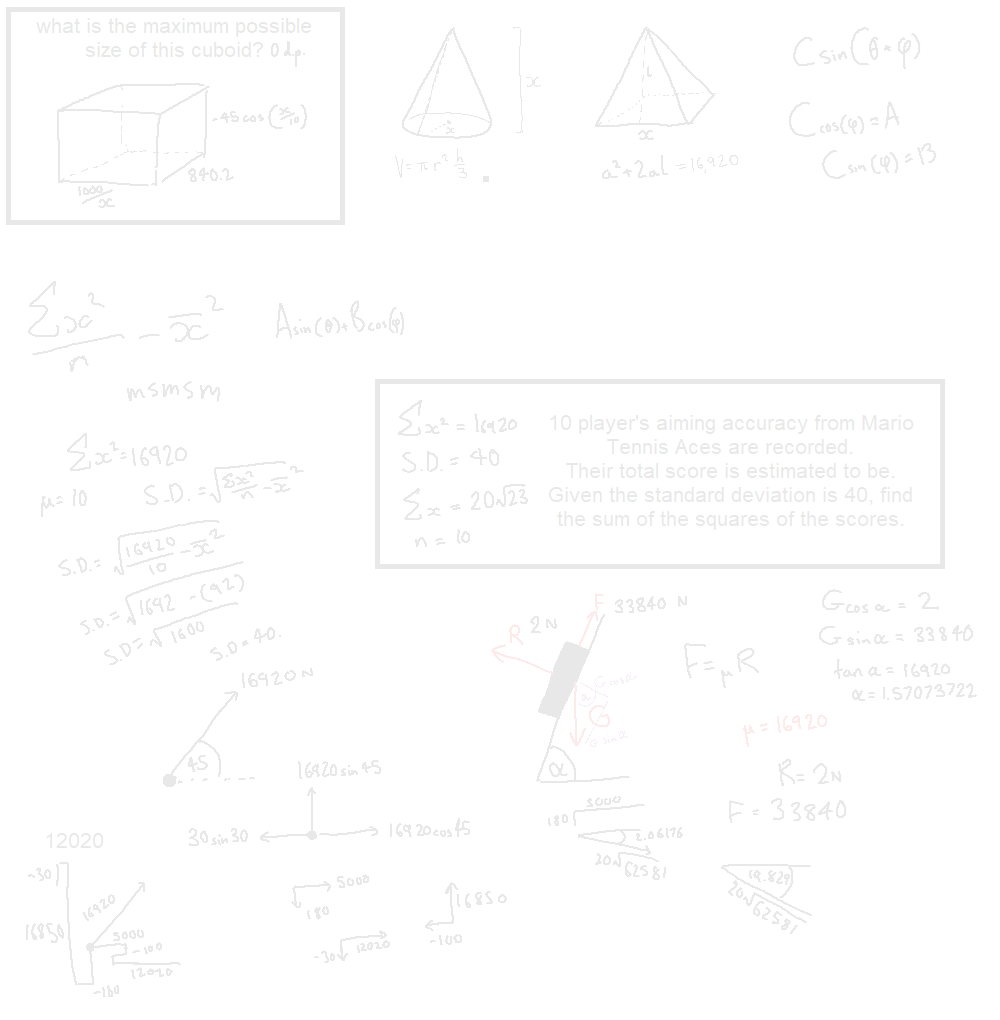 what is the maximum possible
size of this cuboid? 0 d.p.
-45cos(x/10)
840.2
1000/x
x
x
V=πr² h/3
l
x
a²+2al=16,920
Csin(θ+φ)
Ccos(φ)=A
Csin(φ)=13
Σx²/n - x̄²
Asin(θ)+Bcos(φ)
msmsm
Σx²=16920
μ=10
S.D.=√(Σx²/n - x̄²)
S.D.=√(16920/10 - x̄²)
S.D.=√(1692-(92))
S.D=√1600
S.D=40.
Σx²=16920
S.D.=40
Σx=20√23
n=10
10 player's aiming accuracy from Mario
Tennis Aces are recorded.
Their total score is estimated to be.
Given the standard deviation is 40, find
the sum of the squares of the scores.
16920N
45
16920sin45
30sin30
16920cos45
R
2N
F
33840 N
Gcosα
α
G
Gsinα
α
F=μR
Gcosα=2
Gsinα=33840
tanα=16920
α=1.57073722
μ=16920
R=2N
F=33840
5000
180
2.06176
20√62581
19.829
20√62581
12020
-30
16850
16920
5000
-100
12020
-180
5000
180
-30
12020
16850
-100